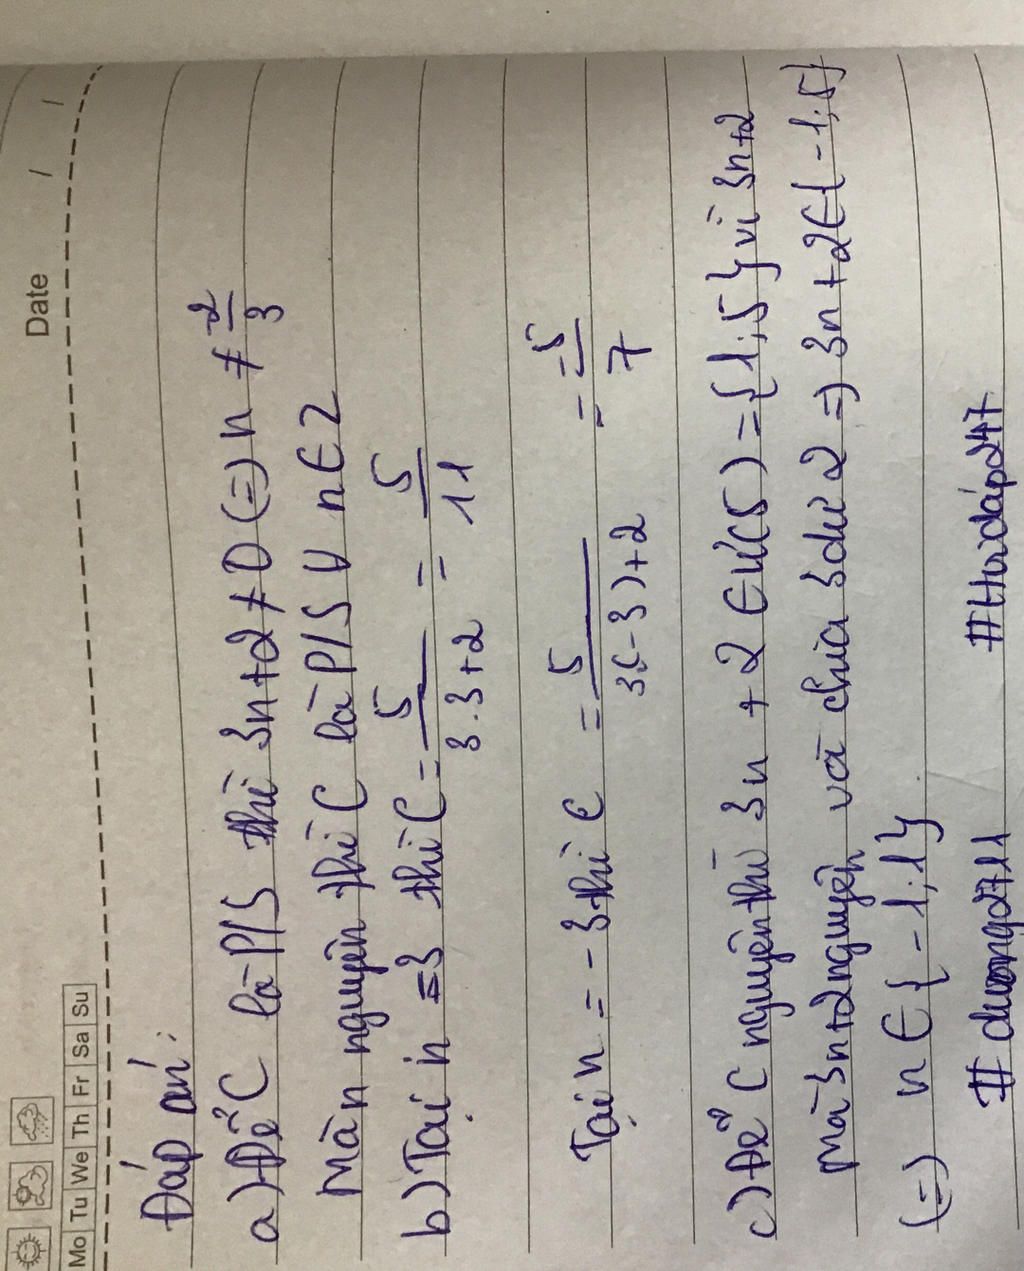 Mo Tu We Th Fr Sa Su
Date / /
Đáp án:
a) Để C là P/S thì 3n+2≠0 (=) n ≠ -2/3
Mà n nguyên thì C là P/S ∀ n ∈ Z
b) Tại n = 3 thì C = 5/3.3+2 = 5/11
Tại n = -3 thì C = 5/3.(-3)+2 = -5/7
c) Để C nguyên thì 3n + 2 ∈ Ư(5) = {1;5} vì 3n+2
Mà 3n+2 nguyên và chia 3 dư 2 => 3n+2 ∈ {-1;5}
(=) n ∈ {-1;1}
# duongd2711 #Hoidap247